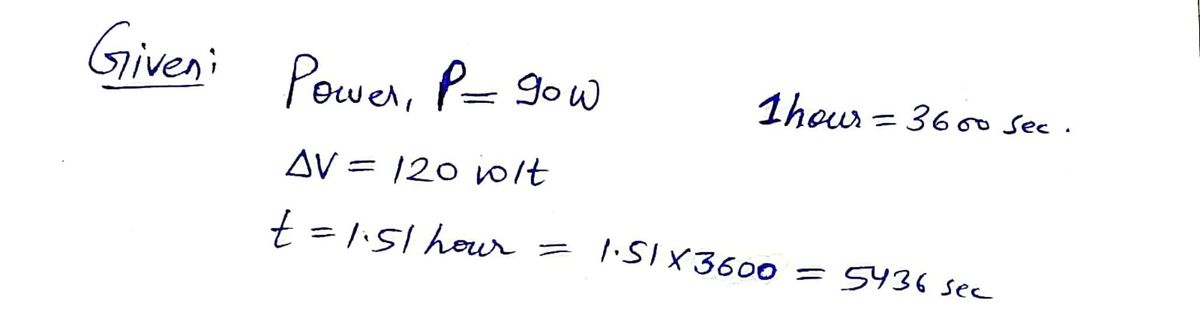 Given:
Power, P = 90W
1hour = 3600 sec.
ΔV = 120 volt
t = 1.51 hour = 1.51 x 3600 = 5436 sec